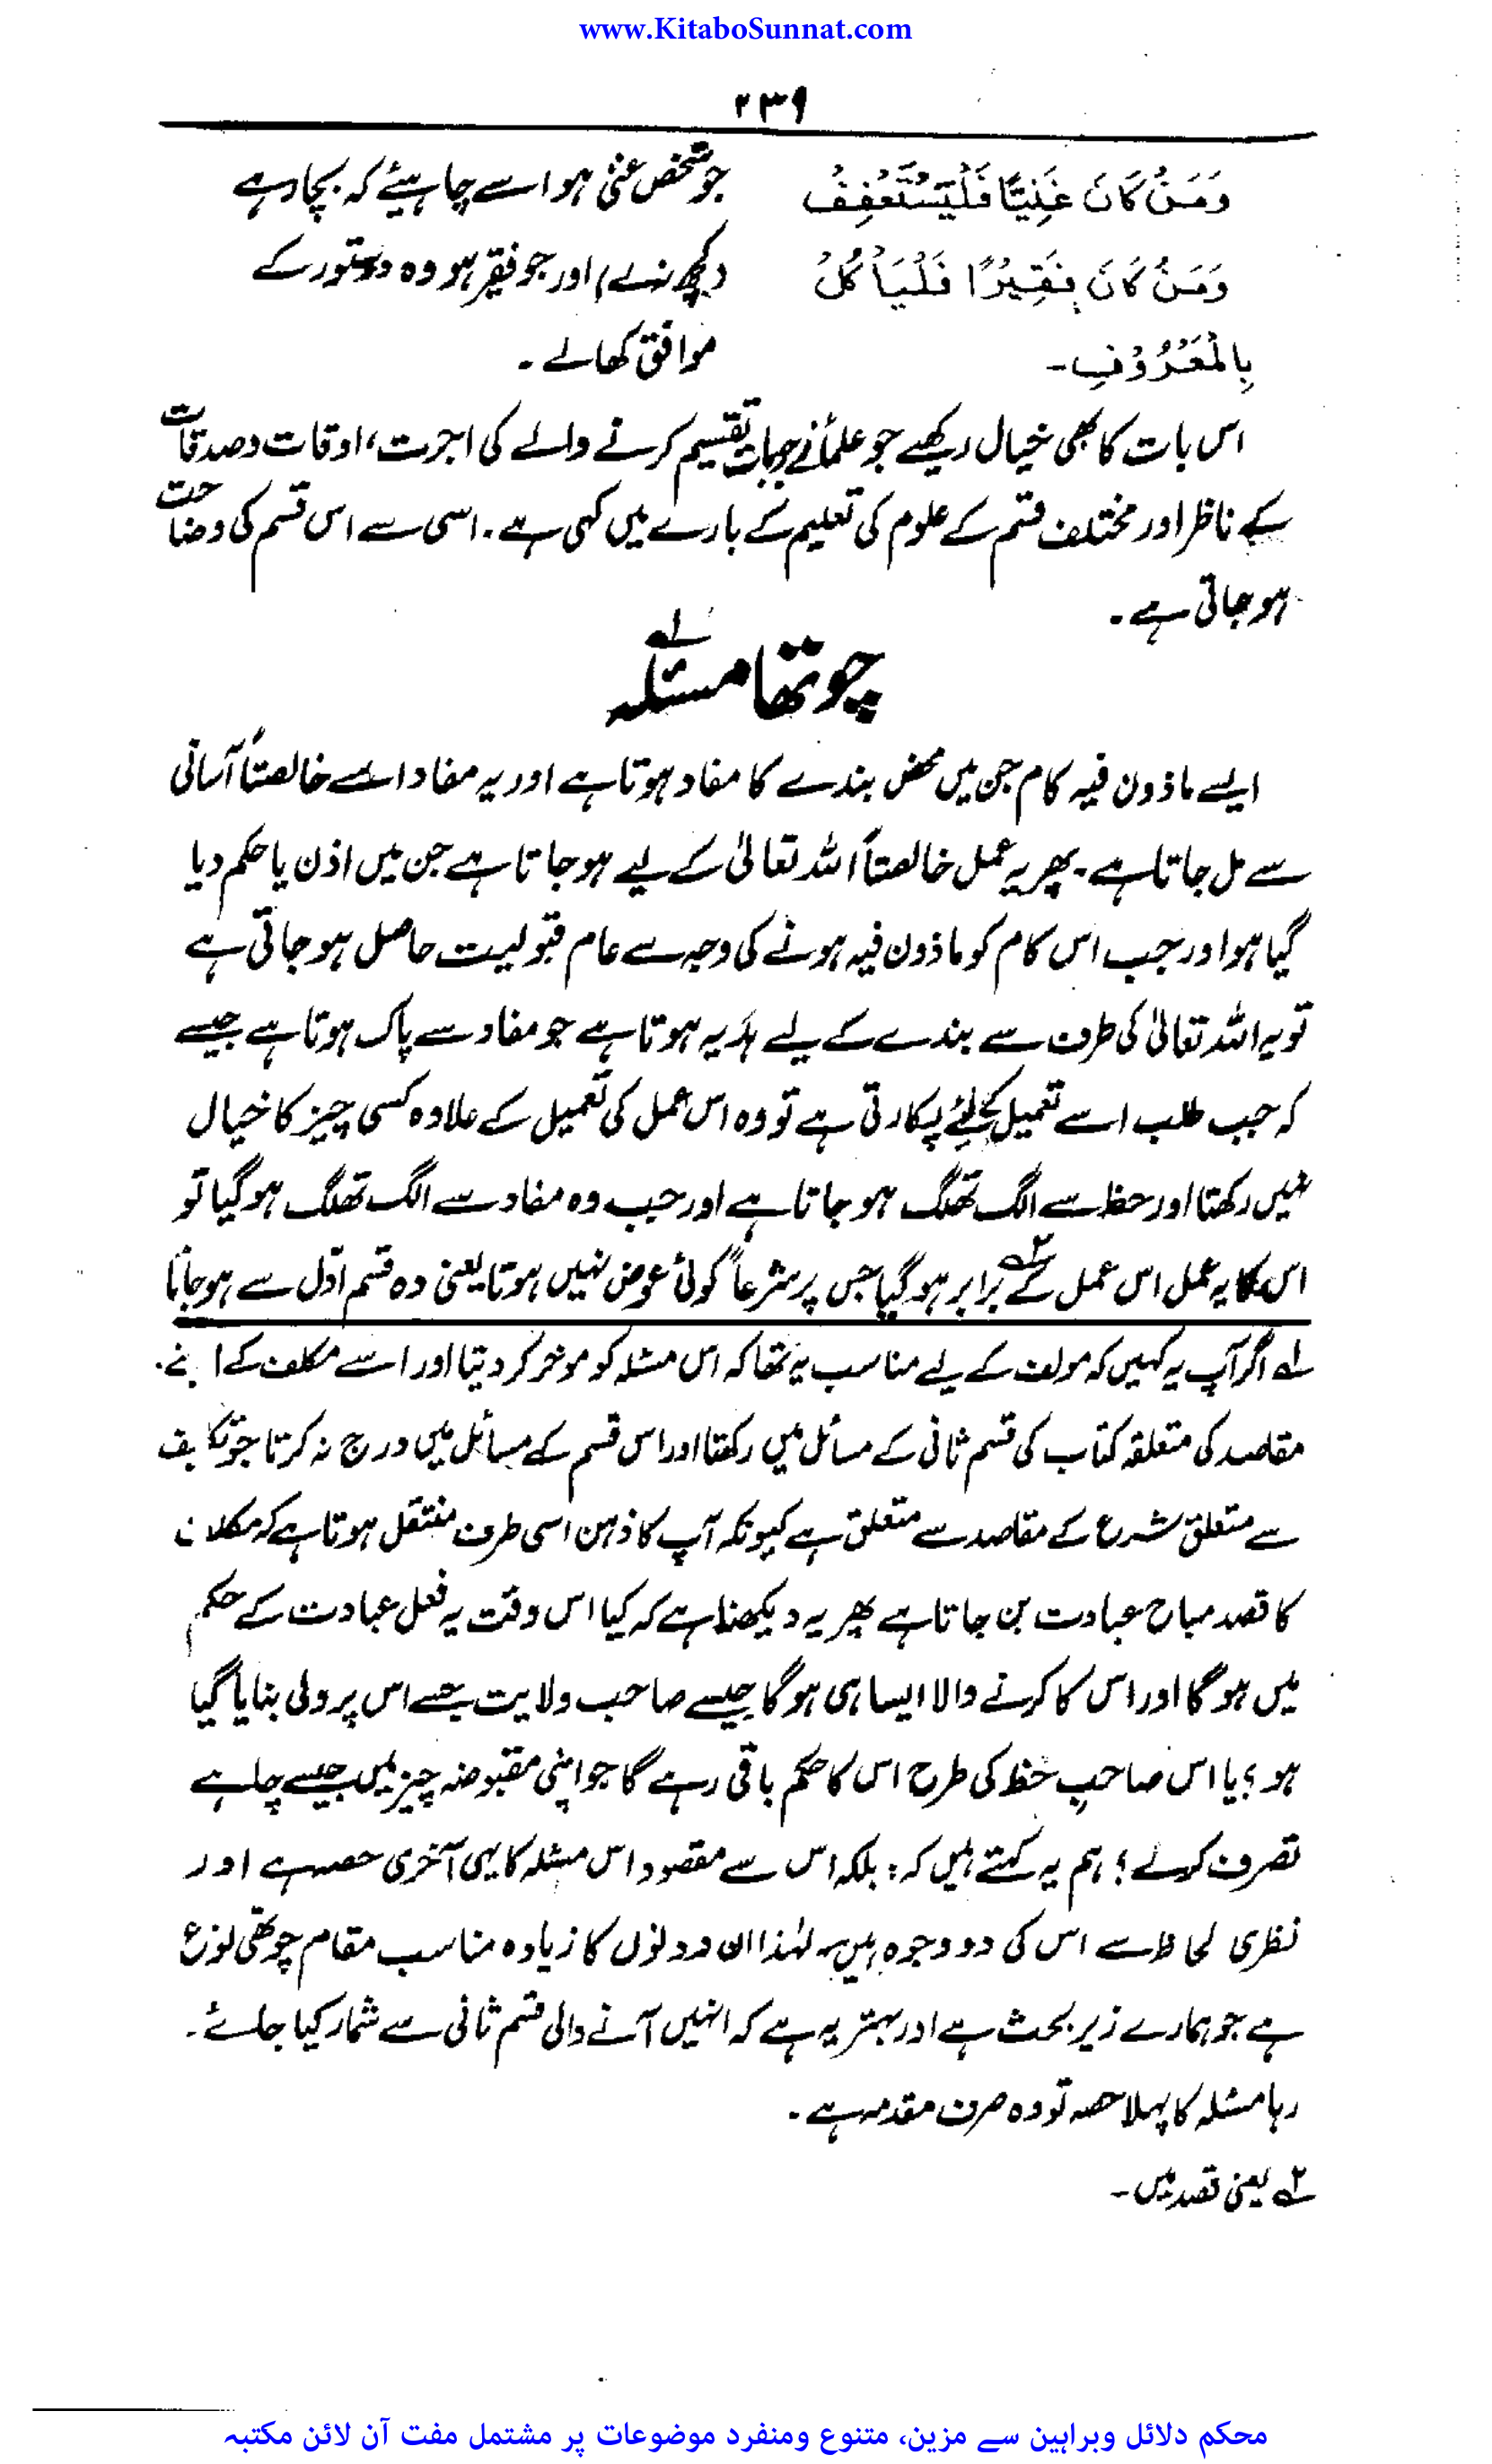 www.KitaboSunnat.com
۲۳۹
وَمَنْ كَانَ غَنِيًّا فَلْيَسْتَعْفِفْ
وَمَنْ كَانَ فَقِيْرًا فَلْيَأْكُلْ
بِالْمَعْرُوْفِ۔
جو شخص غنی ہو اسے چاہیئے کہ بچا رہے
(کچھ نہ لے) اور جو فقیر ہو وہ دستور کے
موافق کھالے۔
اس بات کا بھی خیال رکھیے جو علمائے تقسیم کرنے والے کی اجرت، اوقات وصدقات
کے ناظر اور مختلف قسم کے علوم کی تعلیم کے بارے میں کہی ہے۔ اسی سے اس قسم کی وضاحت
ہو جاتی ہے۔
چوتھا مسئلہ ۱ے
ایسے ماذون فیہ کام جن میں محض بندے کا مفاد ہوتا ہے اور یہ مفاد اسے خالصتاً آسانی
سے مل جاتا ہے۔ پھر یہ عمل خالصتاً اللہ تعالیٰ کے لیے ہو جاتا ہے جن میں اذن یا حکم دیا
گیا ہو اور جب اس کام کو ماذون فیہ ہونے کی وجہ سے عام قبولیت حاصل ہو جاتی ہے
تو یہ اللہ تعالیٰ کی طرف سے بندے کے لیے ہدیہ ہوتا ہے جو مفاد سے پاک ہوتا ہے جیسے
کہ جب طلب اسے تعمیل کیلئے پکارتی ہے تو وہ اس عمل کی تعمیل کے علاوہ کسی چیز کا خیال
نہیں رکھتا اور حظ سے الگ تھلگ ہو جاتا ہے اور جب وہ مفاد سے الگ تھلگ ہو گیا تو
اس کا یہ عمل اس عمل کے ۲ے برابر ہو گیا جس پر شرعاً کوئی عوض نہیں ہوتا یعنی وہ قسم اوّل سے ہو جاتا
۱ے اگر آپ یہ کہیں کہ مولف کے لیے مناسب یہ تھا کہ اس مسئلہ کو موخر کر دیتا اور اسے مکلف کے اپنے
مقاصد کی متعلقہ کتاب کی قسم ثانی کے مسائل میں رکھتا اور اس قسم کے مسائل میں درج نہ کرتا جو تکالیف
سے متعلق شرع کے مقاصد سے متعلق ہے کیونکہ آپ کا ذہن اسی طرف منتقل ہوتا ہے کہ مکلف
کا قصد مباح عبادت بن جاتا ہے پھر یہ دیکھنا ہے کہ کیا اس وقت یہ فعل عبادت کے حکم
میں ہو گا اور اس کا کرنے والا ایسا ہی ہو گا جیسے صاحب ولایت جسے اس پر ولی بنایا گیا
ہو؟ یا اس صاحبِ حظ کی طرح اس کا حکم باقی رہے گا جو اپنی مقبوضہ چیز میں جیسے چاہے
تصرف کرلے؟ ہم یہ کہتے ہیں کہ: بلکہ اس سے مقصود اس مسئلہ کا یہی آخری حصہ ہے اور
نظری لحاظ سے اس کی دو وجوہ ہیں۔ لہٰذا ان دونوں کا زیادہ مناسب مقام چوتھی نوع
ہے جو ہمارے زیر بحث ہے اور بہتر یہ ہے کہ انہیں آنے والی قسم ثانی سے شمار کیا جائے۔
رہا مسئلہ کا پہلا حصہ تو وہ صرف مقدمہ ہے۔
۲ے یعنی قصد میں۔
محکم دلائل وبراہین سے مزین، متنوع ومنفرد موضوعات پر مشتمل مفت آن لائن مکتبہ